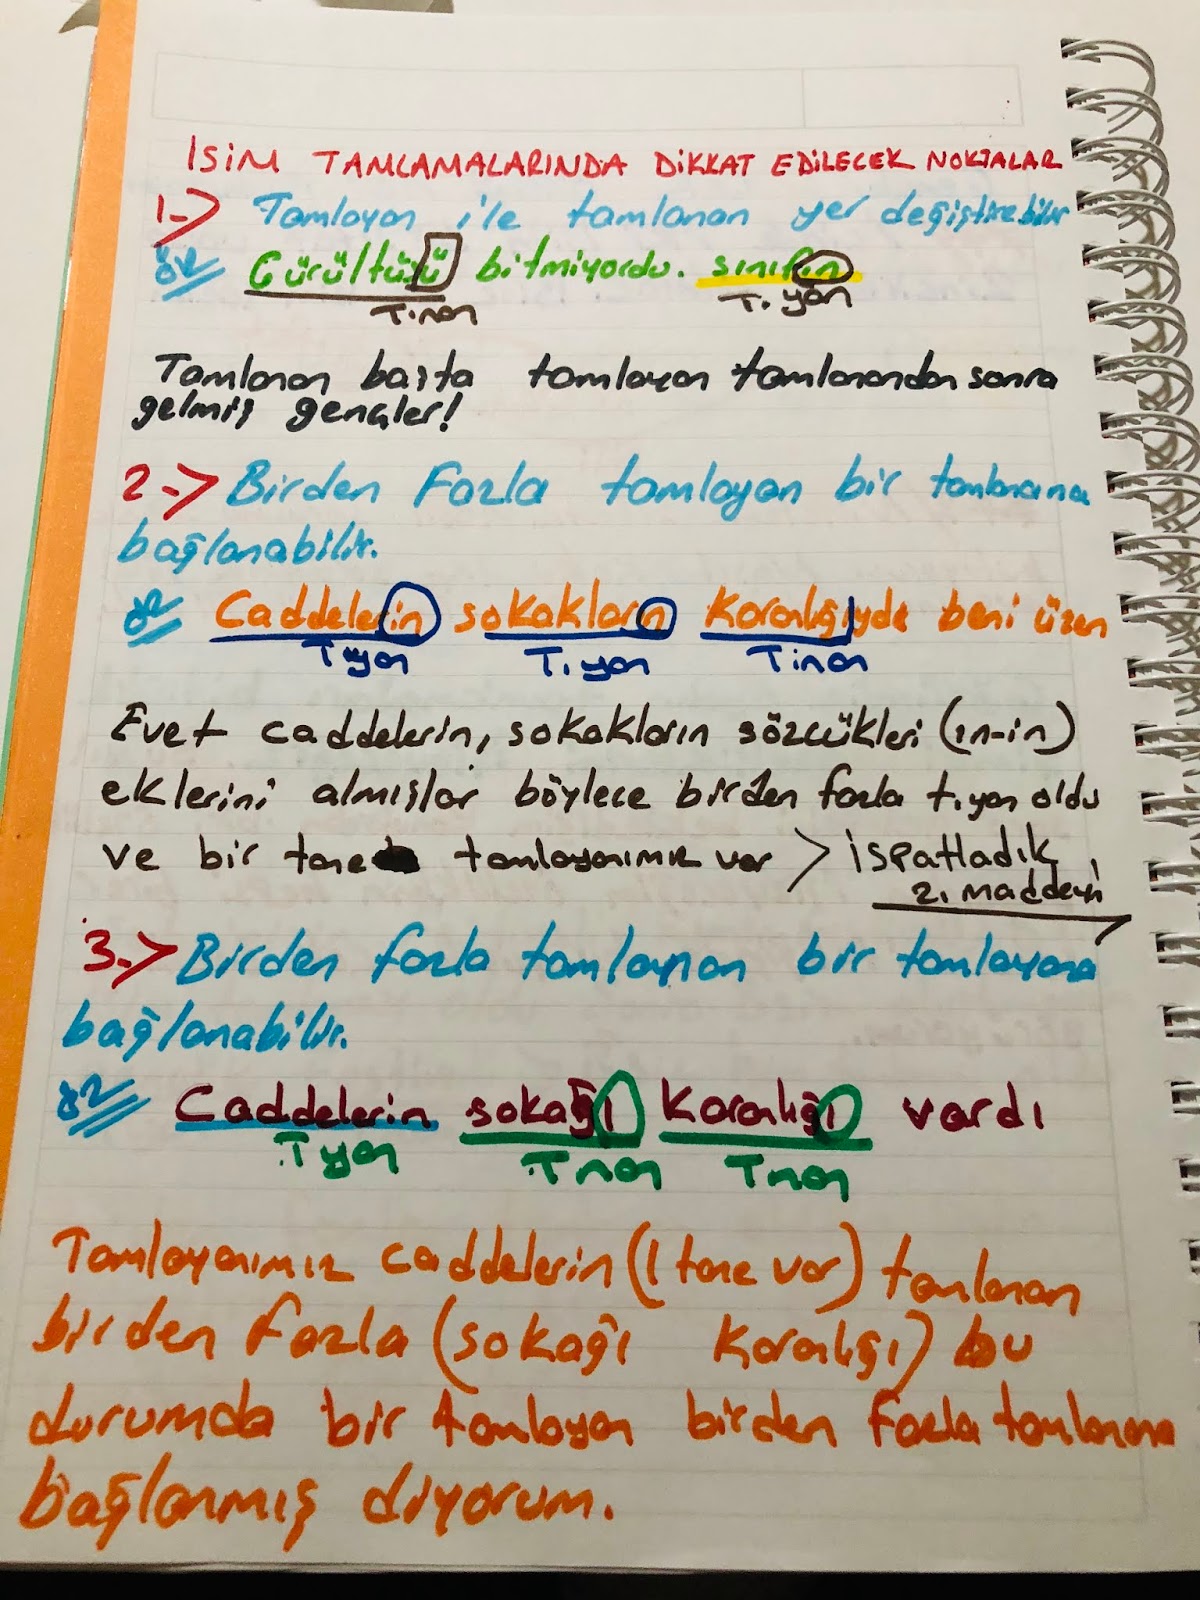 İSİM TAMLAMALARINDA DİKKAT EDİLECEK NOKTALAR
1-> Tamlayan ile tamlanan yer değiştirebilir
ör Gürültüsü bitmiyordu. sınıfın
T.nan T.yan
Tamlanan başta tamlayan tamlanandan sonra
gelmiş gençler!
2-> Birden Fazla tamlayan bir tamlanana
bağlanabilir.
ör Caddelerin sokakların Karanlığıydı beni üzen
T.yan T.yan T.nan
Evet caddelerin, sokakların sözcükleri (ın-in)
eklerini almışlar böylece birden fazla t.yan oldu
ve bir tane tamlayanımız var > İspatladık
2. maddeyi
3-> Birden fazla tamlanan bir tamlayana
bağlanabilir.
ör Caddelerin sokağı Karanlığı vardı
T.yan T.nan T.nan
Tamlayanımız caddelerin (1 tane var) tamlanan
birden fazla (sokağı karanlığı) bu
durumda bir tamlayan birden fazla tamlanana
bağlanmış diyorum.